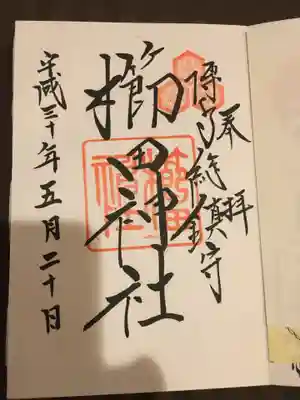 奉拝
博多総鎮守
櫛田神社
平成三十年五月二十日